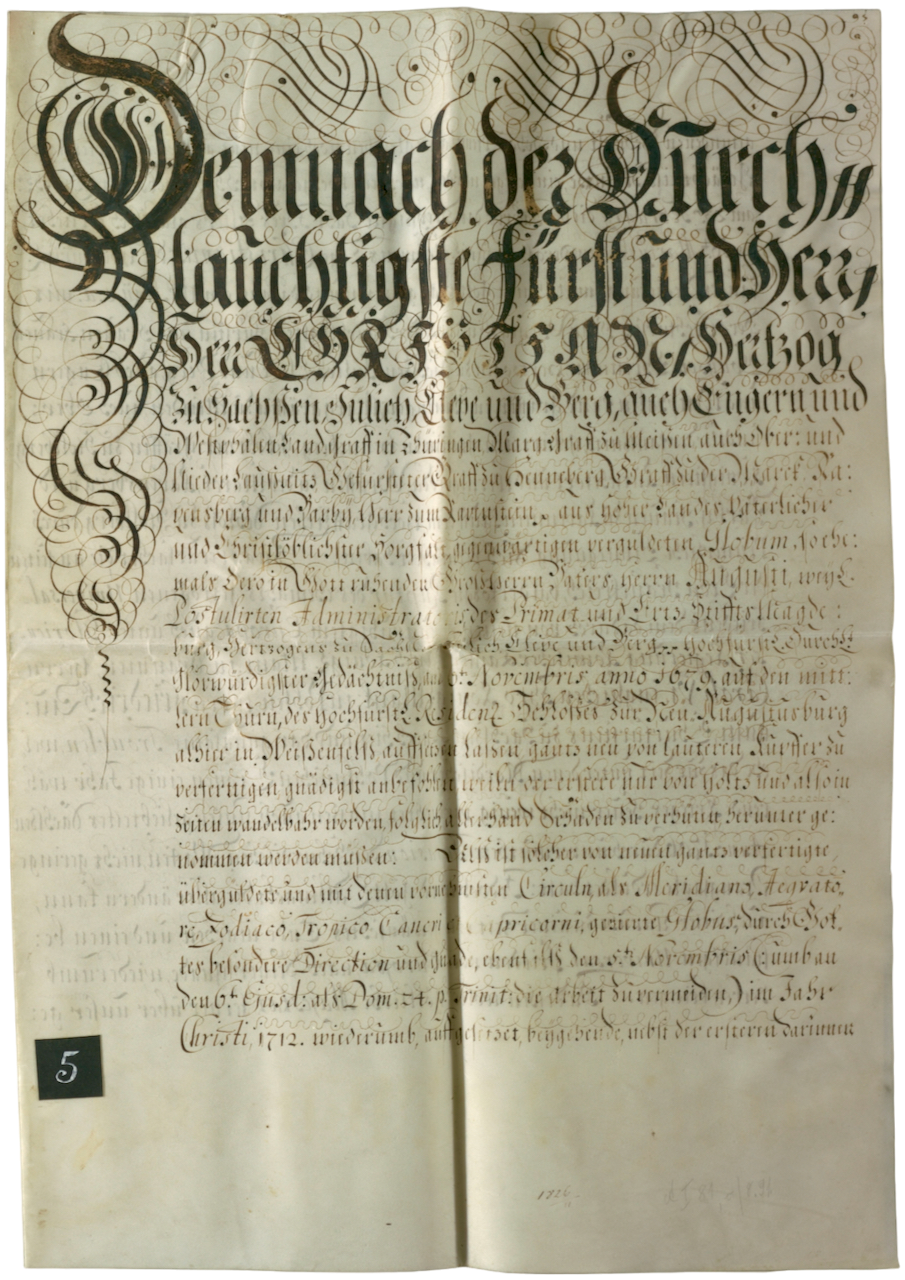 Demnach der Durch=
lauchtigste Fürst und Herr,
Herr CHRISTIAN, Hertzog
zu Sachßen, Jülich, Cleve und Berg, auch Engern und
Westphalen, Landgraff in Thüringen, Marggraff zu Meißen, auch Ober: und
Nieder Laußnitz, Gefürsteter Graff zu Henneberg, Graff zu der Marck, Ra:
vensberg und Barby, Herr zum Ravinstein, aus hoher Landes Väterlicher
und Christlöblichster Sorgfalt, gegenwärtigen vergüldeten Globum, so ehe:
mals Dero in Gott ruhenden Groß Herrn Vaters, Herrn Augusti, weyl.
Postulirten Administratoris des Primat und Ertz Stiffts Magde:
burg, Hertzogens zu Sachßen, Jülich, Cleve und Berg, Hochfürstl. Durchl.
Glorwürdigster Gedächtniß, Novembris, anno 1679. auf den mitt:
lern Thurn, des Hochfürstl. Residenz Schloßes zur Neu Augustusburg
alhier in Weißenfelß auffsetzen laßen, gantz neu von lauteren Kupffer zu
verfertigen gnädigst anbefohlen, weiln der erstere nur von Holtz und also in
Zeiten wandelbahr worden, folglich allerhand Schäden zu verhüten, herunter ge:
nommen werden müßen: Alß ist solcher von neuen gantz verfertigte,
übergüldete und mit denen vornehmsten Circuln, als Meridiano, Aeqvato,
re, Zodiaco, Tropico Cancri Capricorni, gezierte Globus, durch Got,
tes besondere Direction und gnade, ebenfalß den 5t. Novembris (umb an
den 6t. Ejusd: als Dom. 24. p. Trinit: die arbeit zu vermeiden,) im Jahr
Christi, 1712. wiederumb, auffgesetzet, beygehende, nebst der ersteren darinnen
5
1726